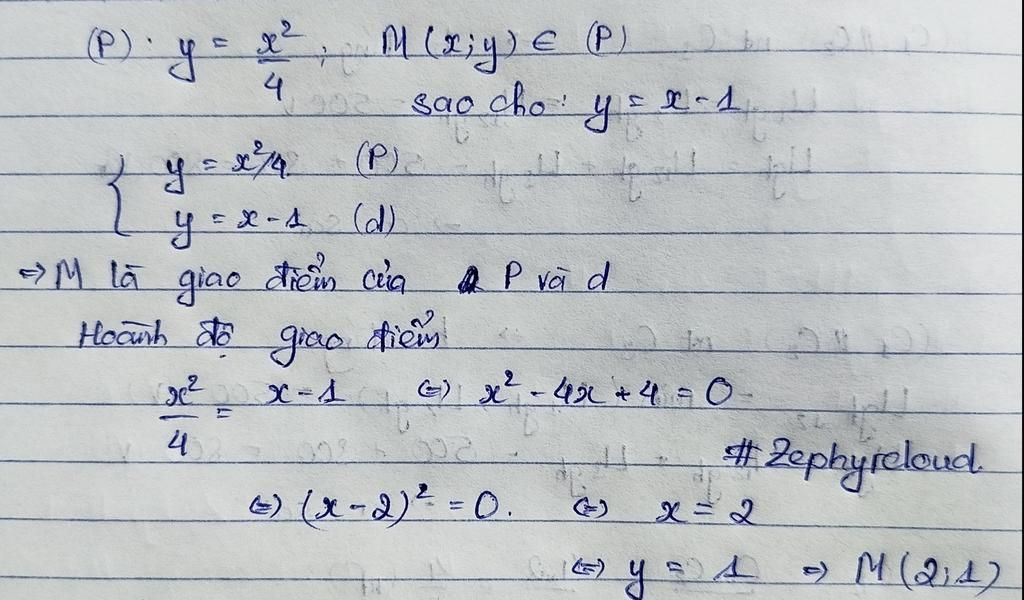 (P): y = x²/4; M(x;y) ∈ (P)
sao cho: y = x-1
{ y = x²/4 (P)
y = x-1 (d)
⇒ M là giao điểm của P và d
Hoành độ giao điểm
x²/4 = x-1 ⇔ x² - 4x + 4 = 0
# Zephyrcloud
⇔ (x-2)² = 0. ⇔ x = 2
⇔ y = 1 ⇒ M(2;1)